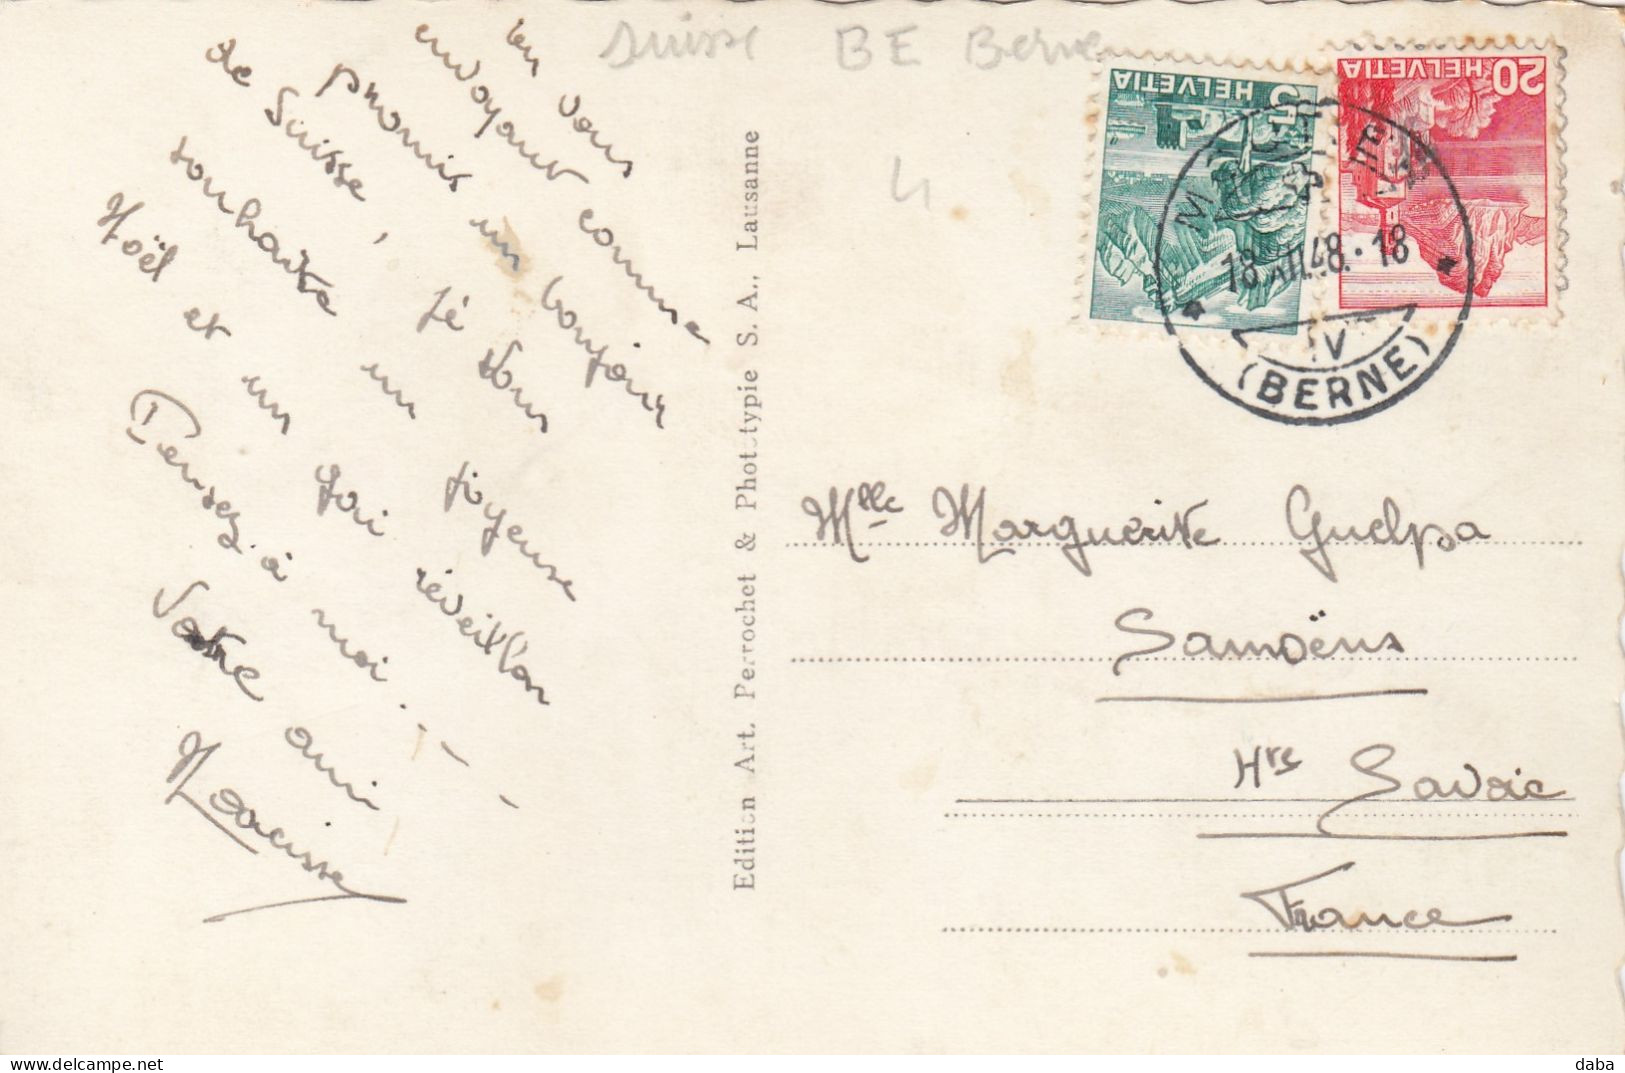 Suisse BE Berne
4
En vous
envoyant comme
promis un bonjour
de Suisse, je vous
souhaite un joyeuse
Noël et un gai réveillon
Pensez à moi. - - -
Votre ami
Narcisse
Edition Art. Perrochet & Phototypie S. A., Lausanne
HELVETIA 5
HELVETIA 20
18.XII.48.-18
IV
(BERNE)
Mlle Marguerite Guelpa
Samoëns
Hte Savoie
France
daba